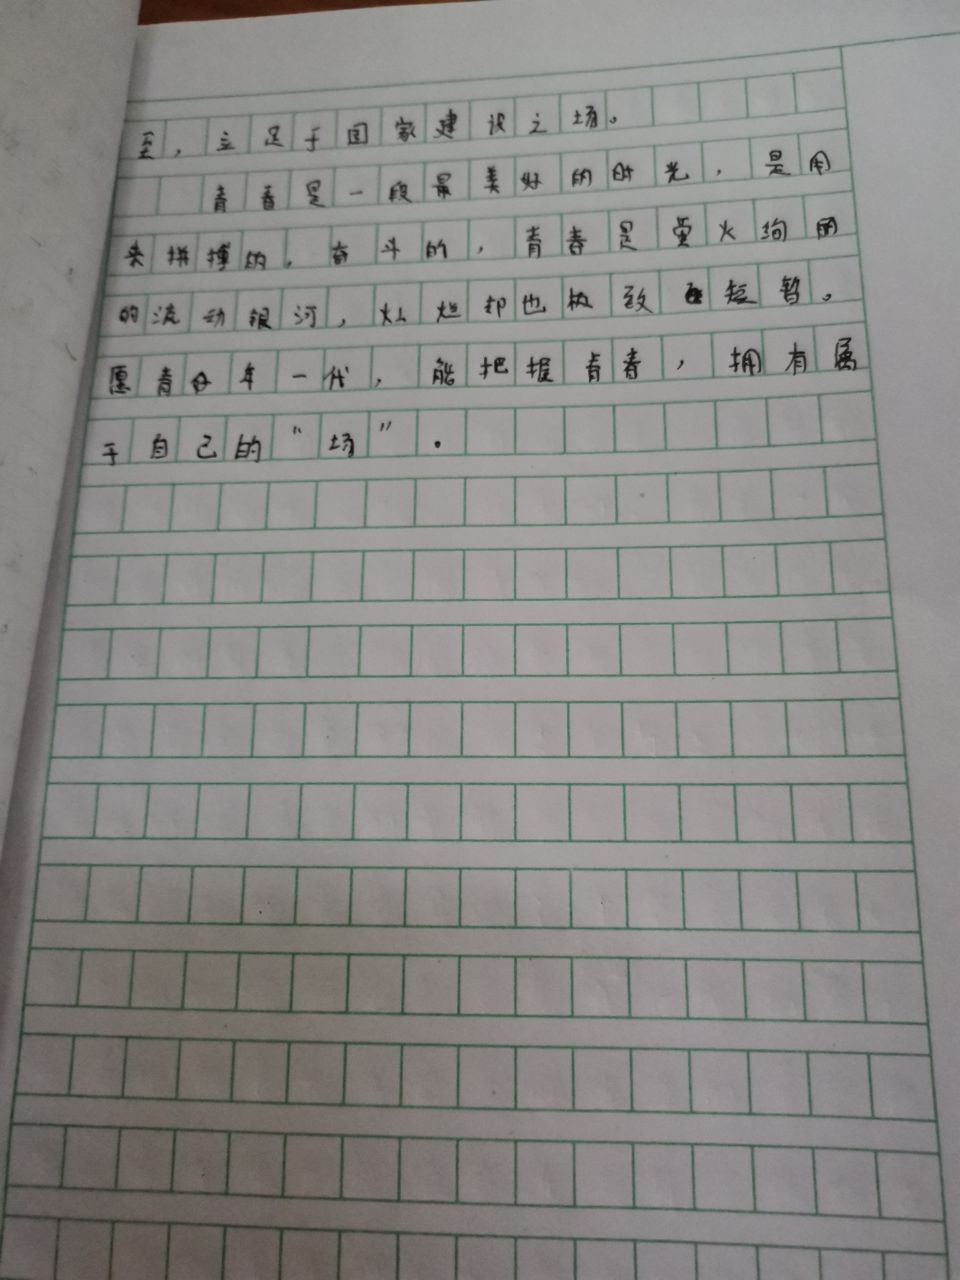 至，立足于国家建设之场。
青春是一段最美好的时光，是用
来拼搏的，奋斗的，青春是萤火绚
的流动银河，灿烂却也极致短暂。
愿青年一代，能把握青春，拥有属
于自己的“场”。